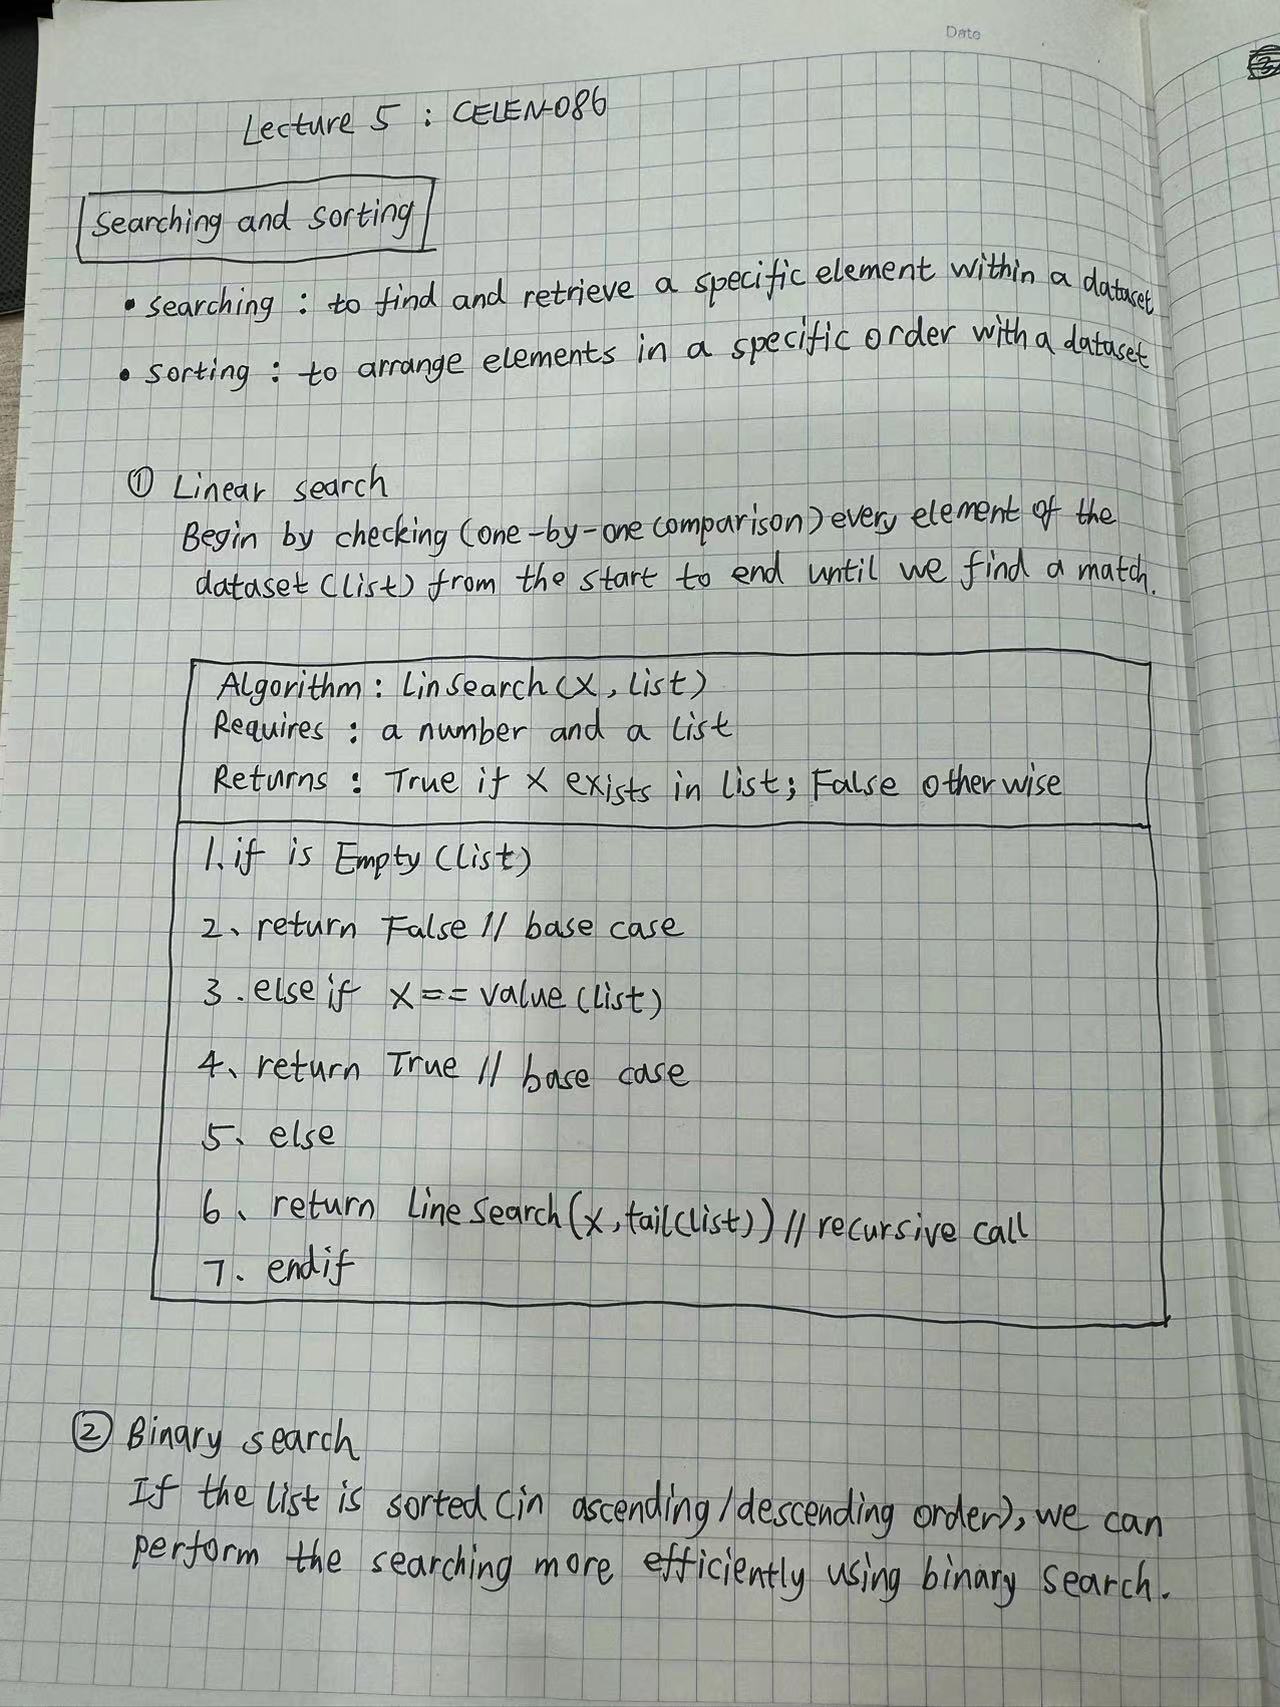 Date
Lecture 5 : CELEN-086
Searching and Sorting
• Searching : to find and retrieve a specific element within a dataset
• Sorting : to arrange elements in a specific order with a dataset
① Linear search
Begin by checking (one-by-one comparison) every element of the
dataset (list) from the start to end until we find a match.
Algorithm : LinSearch (x, list)
Requires : a number and a list
Returns : True if x exists in list; False otherwise
1. if is Empty (list)
2、 return False // base case
3. else if x == value (list)
4、 return True // base case
5、 else
6、 return Line Search (x, tail(list)) // recursive call
7. endif
② Binary search
If the list is sorted (in ascending/descending order), we can
perform the searching more efficiently using binary search.